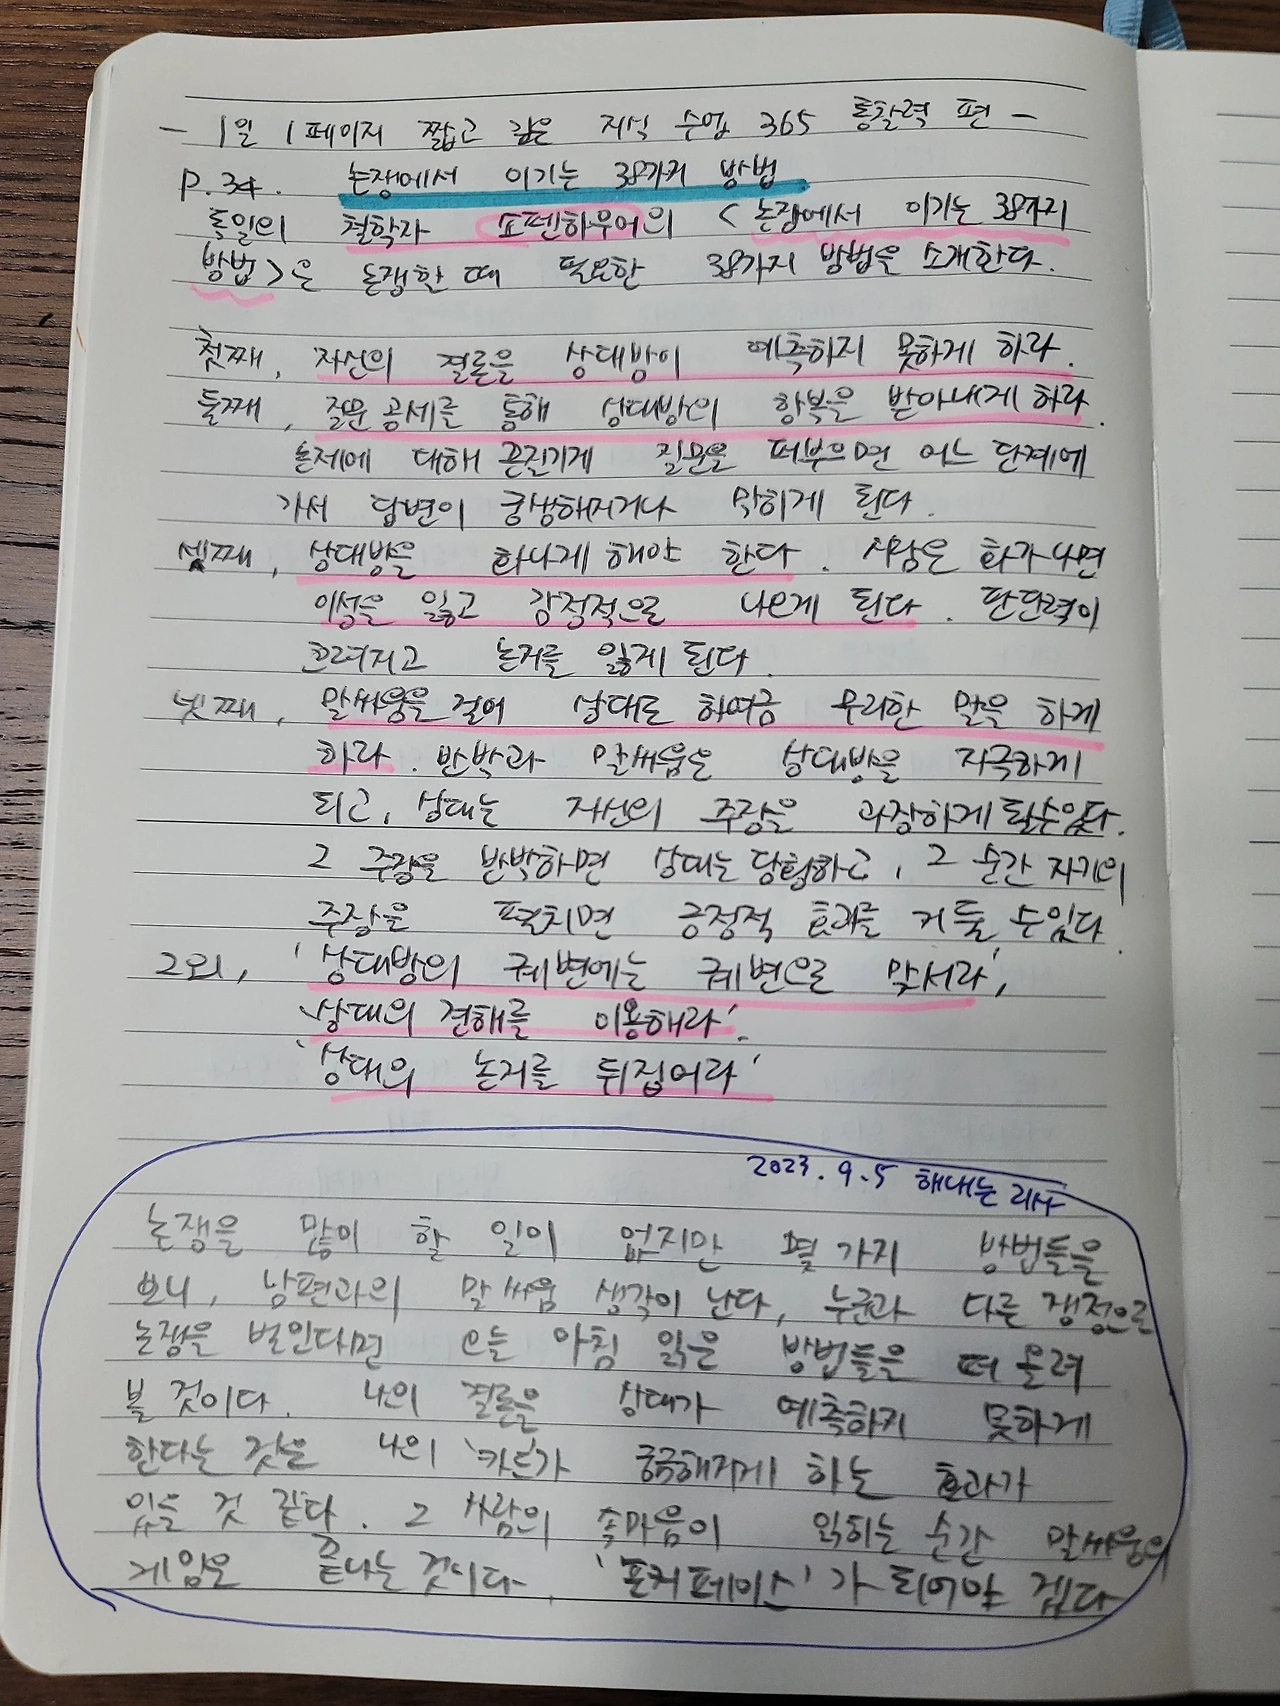 - 1일 1페이지 짧고 깊은 지식 수업 365 통찰력 편 -
P.34. 논쟁에서 이기는 38가지 방법
독일의 철학자 쇼펜하우어의 <논쟁에서 이기는 38가지
방법>은 논쟁할 때 필요한 38가지 방법을 소개한다.
첫째, 자신의 결론을 상대방이 예측하지 못하게 하라.
둘째, 질문 공세를 통해 상대방의 항복을 받아내게 하라.
논제에 대해 끈질기게 질문을 퍼부으면 어느 단계에
가서 답변이 궁색해지거나 막히게 된다.
셋째, 상대방을 화나게 해야 한다. 사람은 화가 나면
이성을 잃고 감정적으로 나오게 된다. 판단력이
흐려지고 논거를 잃게 된다.
넷째, 말싸움을 걸어 상대로 하여금 무리한 말을 하게
하라. 반박과 말싸움은 상대방을 자극하게
되고, 상대는 자신의 주장을 과장하게 될수있다.
그 주장을 반박하면 상대는 당혐하고, 그 순간 자기의
주장을 펼치면 긍정적 효과를 거둘 수있다.
그외, '상대방의 궤변에는 궤변으로 맞서라',
'상대의 견해를 이용해라'.
'상대의 논거를 뒤집어라'
2023. 9. 5 해내는 리사
논쟁을 많이 할 일이 없지만 몇 가지 방법들을
보니, 남편과의 말싸움 생각이 난다, 누군과 다른 쟁점으로
논쟁을 벌인다면 오늘 아침 읽은 방법들을 떠 올려
볼 것이다. 나의 결론을 상대가 예측하지 못하게
한다는 것은 나의 '카드'가 궁금해지게 하는 효과가
있을 것 같다. 그 사람의 속마음이 읽히는 순간 말싸움의
게임은 끝나는 것이다. '포커페이스'가 되어야 겠다